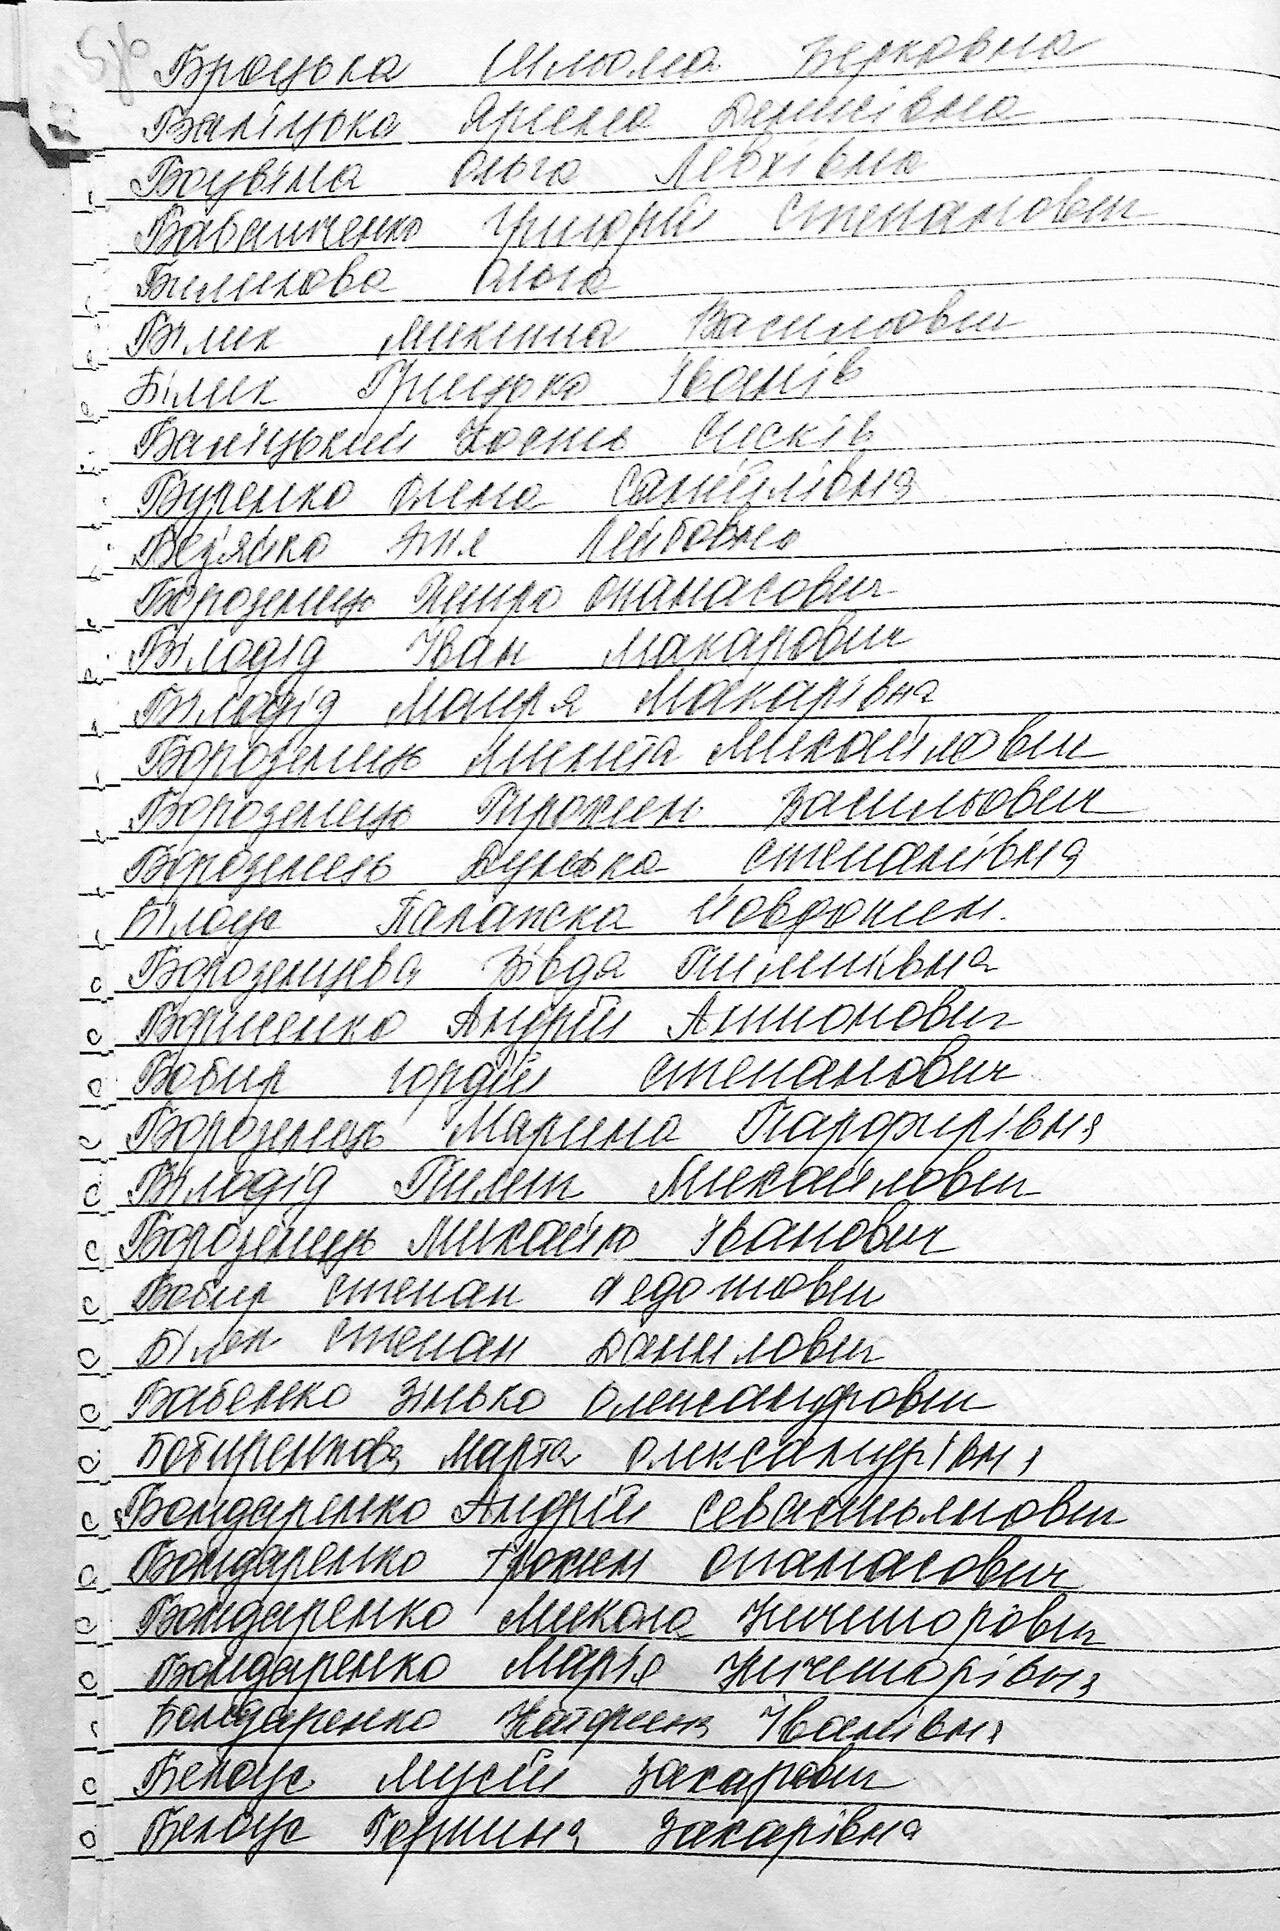 Броцька Шльома Берковна
Баліцька Ярина Денисівна
Боцвіна Ольга Левківна
Бабаниченко Григорій Степанович
Биликова Ольга
Білик Микита Васильович
Білик Грицько Іванів
Баліцький Кость Сисків
Буренко Олена Самійлівна
Лейбовна
Борозенець Петро Опанасович
Білодід Іван Макарович
Білодід Макарівна
Борозенець Микита Михайлович
Борозенець Прокіп Васильович
Борозенець Дунька Степанівна
Білоус Палажка Йовдоким.
Борозенцева Вівдя Пилипівна
Борисенко Андрій Антонович
Бобир Юрдій Степанович
Борозенець Марина Парфирівна
Білодід Пилип Михайлович
Борозенець Михайло Іванович
Бобир Степан Федотович
Білек Степан Данилович
Бабенко Зінько Олександрович
Бобиренкова Марта Олександрівна
Бондаренко Андрій Севастьянович
Бондаренко Трохим Опанасович
Бондаренко Микола Ничипорович
Бондаренко Марія Ничипорівна
Бондаренко Катерина Іванівна
Белоус Мусій Захарович
Белоус Горпина Захарівна